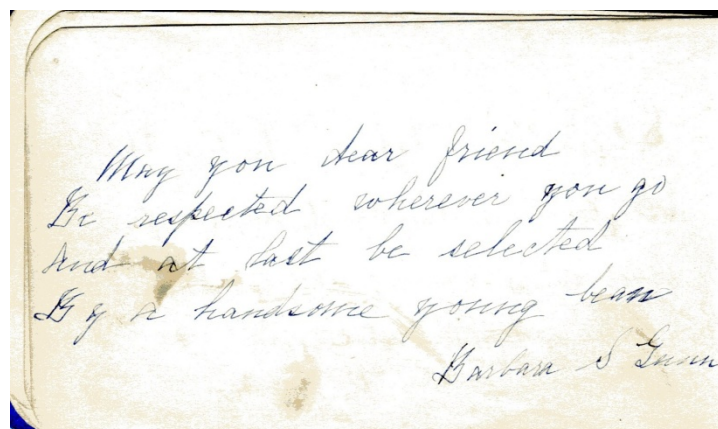 May you dear friend
Be respected wherever you go
And at last be selected
By a handsome young beau
Barbara S Gunn